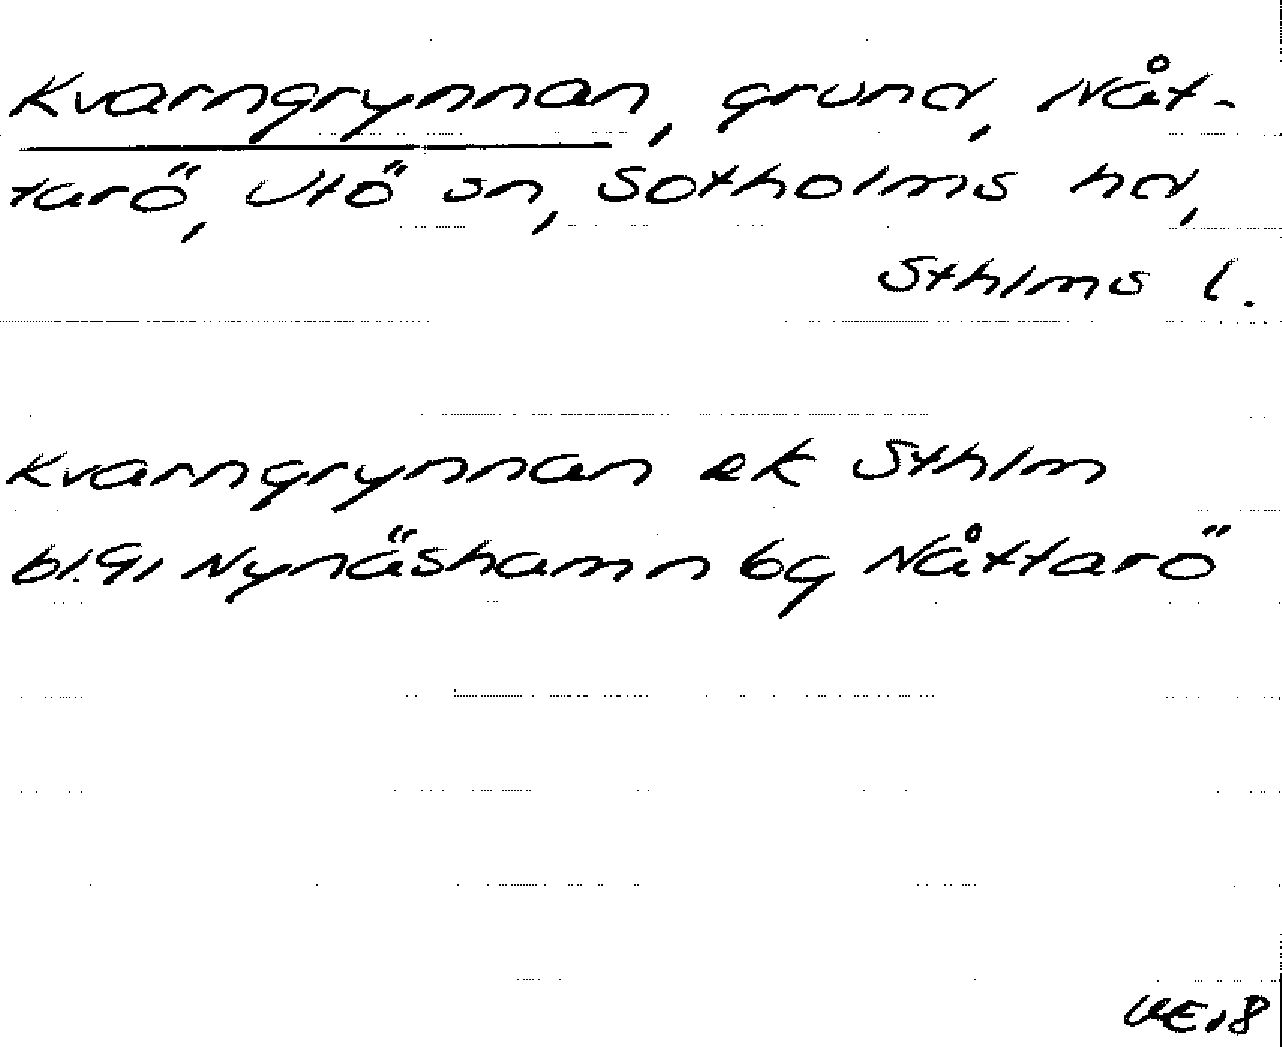 Kvarngrynnan, grund, Nåt-
tarö, Utö sn, Sotholms hd,
Sthlms l.
Kvarngrynnan ek Sthlm
bl.91 Nynäshamn bg Nåttarö